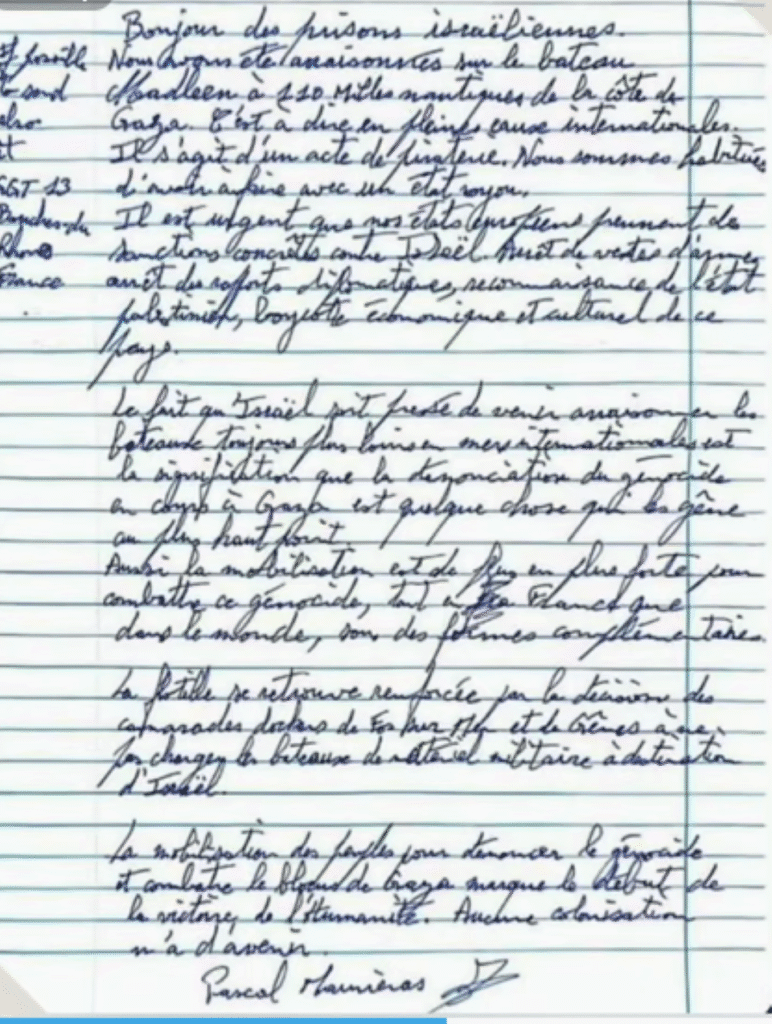 Bonjour des prisons israëliennes.
Nous avons été arraisonnés sur le bateau
Madleen à 110 Milles nautiques de la côte de
Gaza. C'est à dire en pleines eaux internationales.
Il s'agit d'un acte de piraterie. Nous sommes habitués
d'avoir à faire avec un état voyou.
Il est urgent que nos états européens prennent des
sanctions concrêtes contre Israël. Arrêt de ventes d'armes
arrêt des raports diplomatiques, reconnaissance de l'état
palestinien, boycote économique et culturel de ce
pays.
Le fait qu'Israël soit pressé de venir arraisonner les
bateaux toujours plus loins en mers internationales est
la signification que la dénonciation du génocide
en cours à Gaza est quelque chose qui les gêne
au plus haut point.
Aussi la mobilisation est de plus en plus forte pour
combattre ce génocide, tant en France que
dans le monde, sous des formes complémentaires.
La flotille se retrouve renforcée par la décision des
camarades dockers de Fos sur Mer et de Gênes à ne
pas charger les bateaux de matériel militaire à destination
d'Israël.
La mobilisation des peuples pour dénoncer le génocide
et combatre le blocus de Gaza marque le début de
la victoire, de l'Humanité. Aucune colonisation
n'a d'avenir.
Pascal Maurieras
GGT 13
Bouches du
Rhone
France